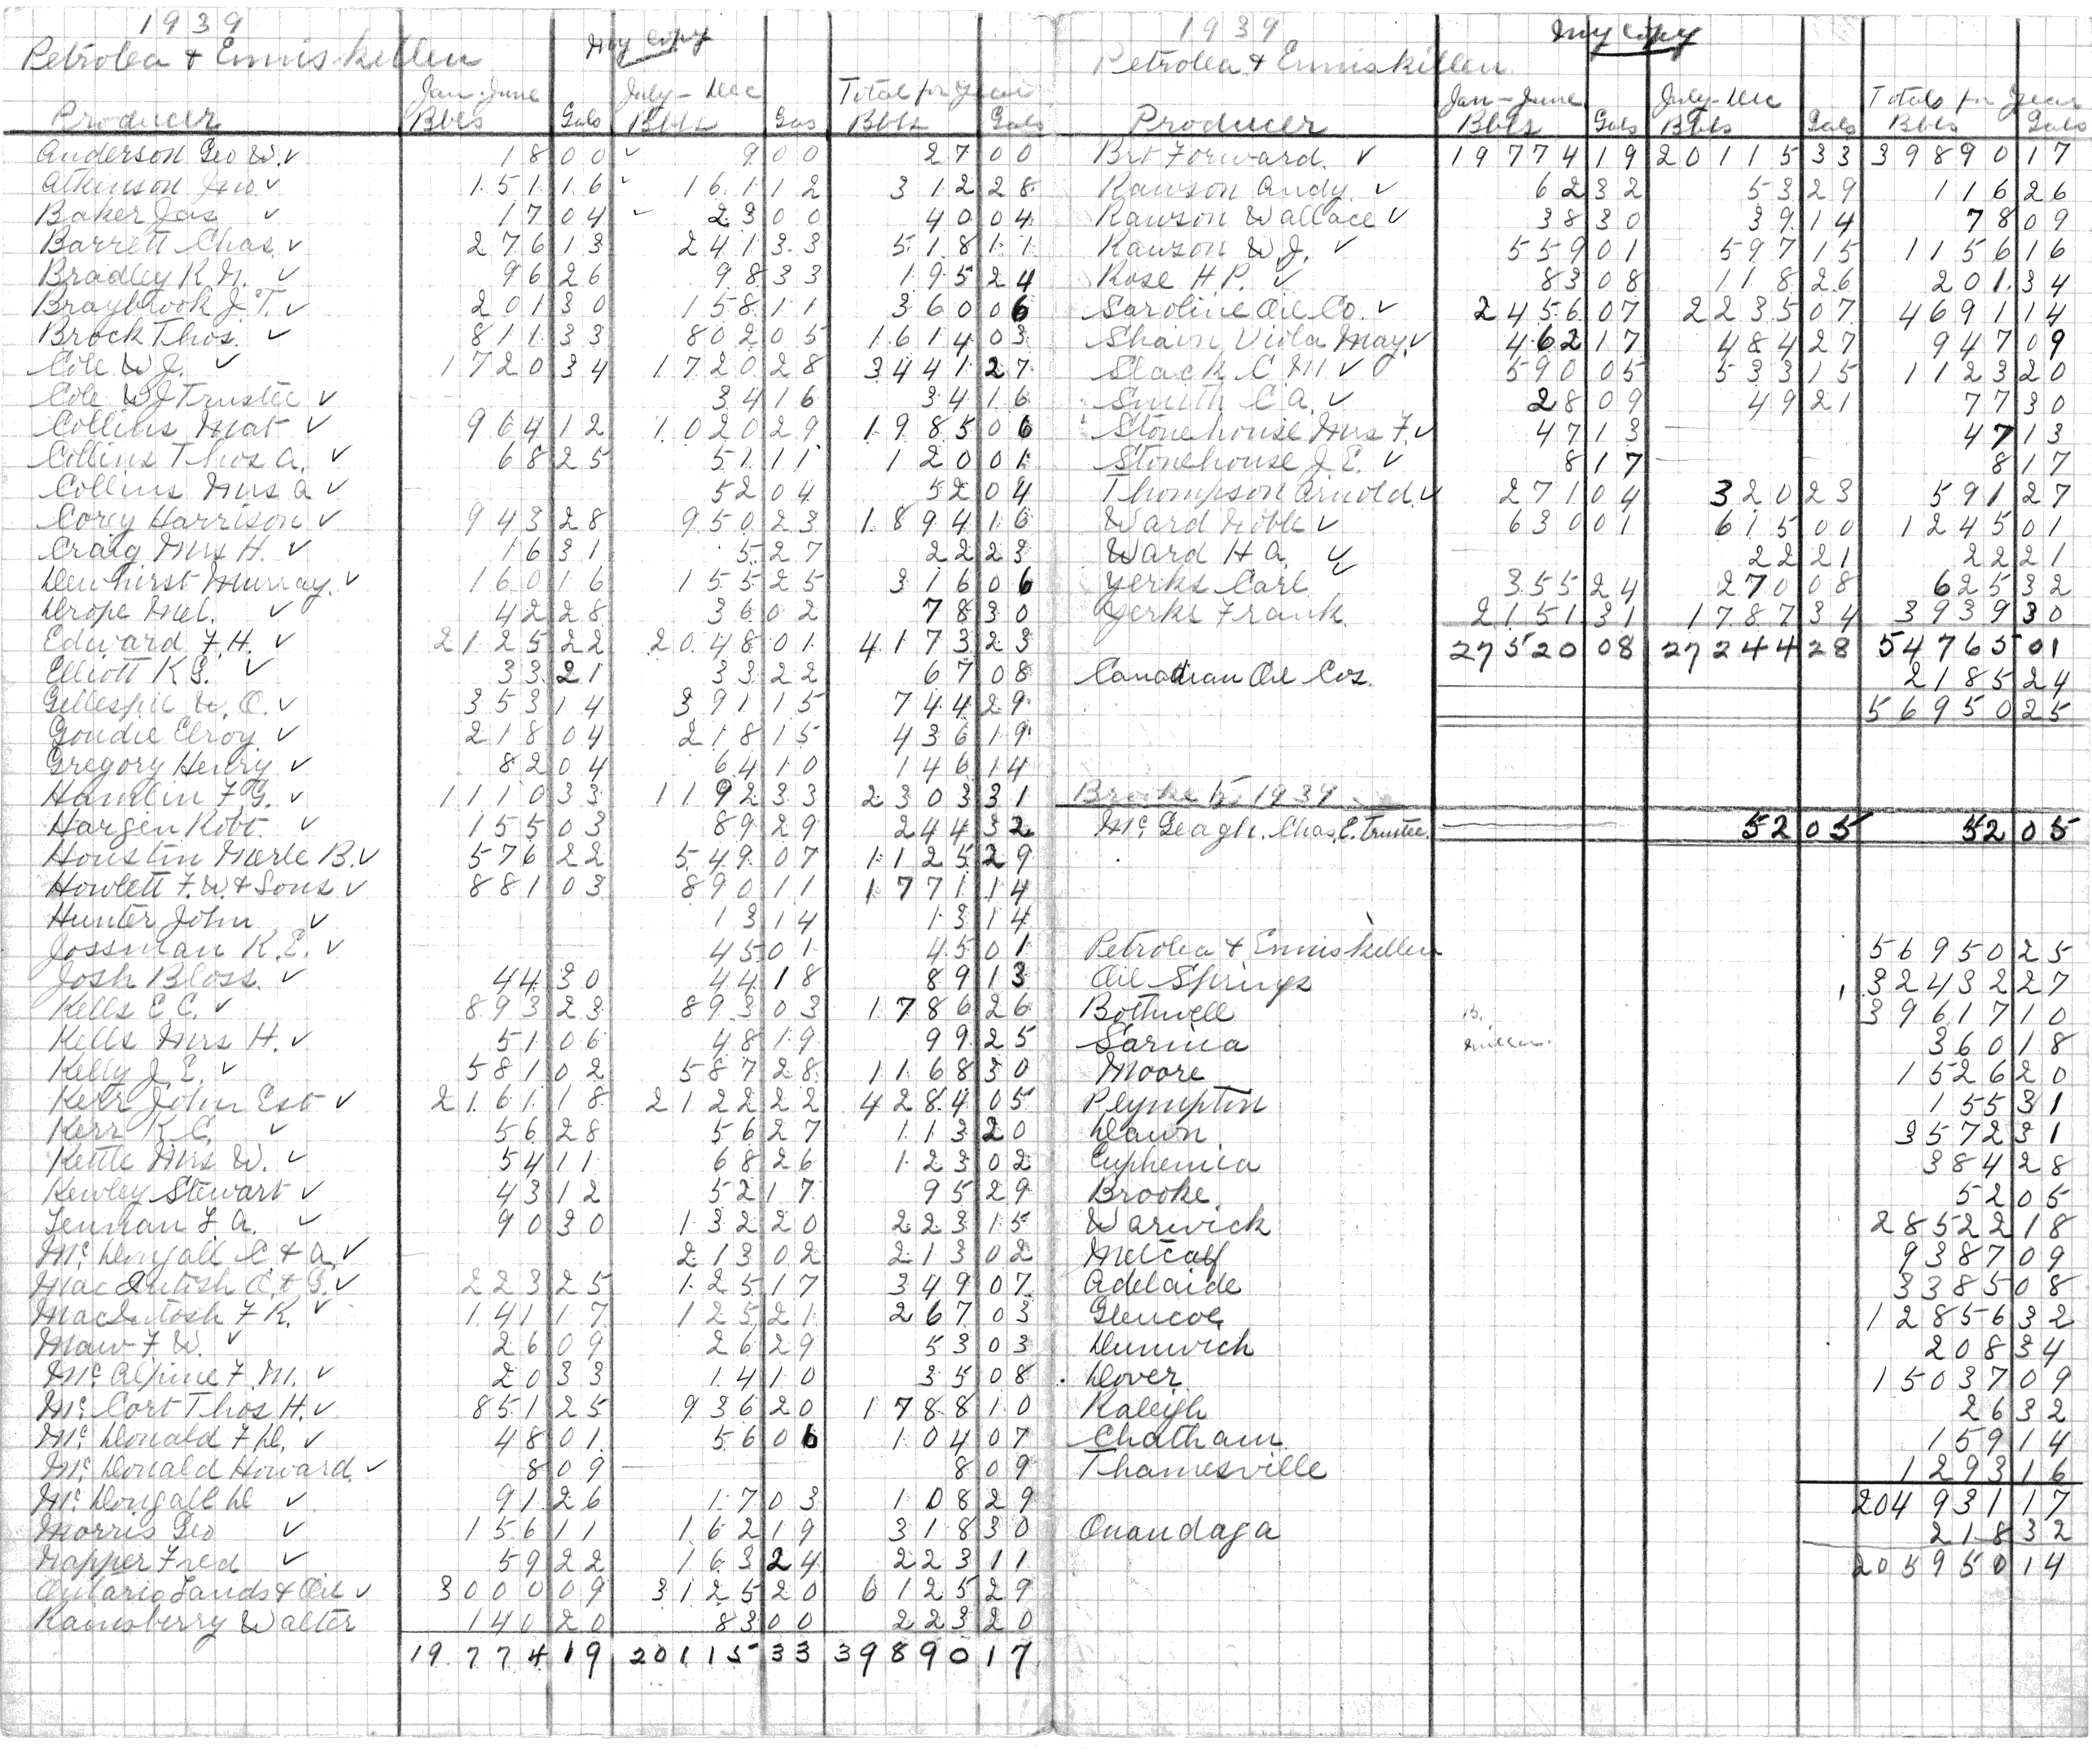 1939
Petrolea & Enniskillen my copy
Jan-June July-Dec Total for year
Producer Bbls Gals Bbls Gas Bbls Gals
Anderson Geo W. ✓ 18 00 ✓ 9 00 27 00
Atkinson Jno. ✓ 151 16 ✓ 161 12 312 28
Baker Jas ✓ 17 04 ✓ 23 00 40 04
Barrett Chas. ✓ 276 13 241 33 518 11
Bradley R. N. ✓ 96 26 98 33 195 24
Braybrook J. T. ✓ 201 30 158 11 360 06
Brock Thos. ✓ 811 33 802 05 1614 03
Cole W J. ✓ 1720 34 1720 28 3441 27
Cole WJ Trustee ✓ 34 16 34 16
Collins Mat ✓ 964 12 1020 29 1985 06
Collins Thos A. ✓ 68 25 51 11 120 01
Collins Mrs A ✓ 52 04 52 04
Corey Harrison ✓ 943 28 950 23 1894 16
Craig Mrs H. ✓ 16 31 5 27 22 23
Dewhirst Murray. ✓ 160 16 155 25 316 06
Drope Mel. ✓ 42 28 36 02 78 30
Edward F. H. ✓ 2125 22 2048 01 4173 23
Elliott K G. ✓ 33 21 33 22 67 08
Gillespie W. O. ✓ 353 14 391 15 744 29
Goudie Elroy ✓ 218 04 218 15 436 19
Gregory Henry ✓ 82 04 64 10 146 14
Hamlin F. G. ✓ 1110 33 1192 33 2303 31
Hargen Robt. ✓ 155 03 89 29 244 32
Houston Merle B. ✓ 576 22 549 07 1125 29
Howlett F. W & Sons ✓ 881 03 890 11 1771 14
Hunter John ✓ 13 14 13 14
Jossman R. E. ✓ 45 01 45 01
Josh Bloss. ✓ 44 30 44 18 89 13
Kells E C. ✓ 893 23 893 03 1786 26
Kells Mrs H. ✓ 51 06 48 19 99 25
Kelly J. E. ✓ 581 02 587 28 1168 30
Kerr John Est ✓ 2161 18 2122 22 4284 05
Kerr R C. ✓ 56 28 56 27 113 20
Kettle Mrs W. ✓ 54 11 68 26 123 02
Kewley Stewart ✓ 43 12 52 17 95 29
Lenman F. A. ✓ 90 30 132 20 223 15
Mc Dougall C & A. ✓ 213 02 213 02
MacIntosh C. & G. ✓ 223 25 125 17 349 07
MacIntosh F R. ✓ 141 17 125 21 267 03
Maw F W. ✓ 26 09 26 29 53 03
Mc Alpine F. M. ✓ 20 33 14 10 35 08
Mc Cort Thos H. ✓ 851 25 936 20 1788 10
Mc Donald F D. ✓ 48 01 56 06 104 07
Mc Donald Howard. ✓ 8 09 8 09
Mc Dougall D ✓ 91 26 17 03 108 29
Morris Geo ✓ 156 11 162 19 318 30
Napper Fred ✓ 59 22 163 24 223 11
Ontario Lands & Oil ✓ 3000 09 3125 20 6125 29
Ramsberry Walter 140 20 83 00 223 20
19774 19 20115 33 39890 17
1939
Petrolea & Enniskillen my copy
Jan-June July-Dec Totals for year
Producer Bbls Gals Bbls Gals Bbls Gals
Brt Forward. ✓ 19774 19 20115 33 39890 17
Rawson Andy. ✓ 62 32 53 29 116 26
Rawson Wallace ✓ 38 30 39 14 78 09
Rawson W J. ✓ 559 01 597 15 1156 16
Rose H. P. ✓ 83 08 118 26 201 34
Saroline Oil Co. ✓ 2456 07 2235 07 4691 14
Shain Viola May. ✓ 462 17 484 27 947 09
Slack C M ✓ 590 05 533 15 1123 20
Smith C A. ✓ 28 09 49 21 77 30
Stonehouse Mrs F. ✓ 47 13 47 13
Stonehouse J E. ✓ 8 17 8 17
Thompson Arnold. ✓ 271 04 320 23 591 27
Ward Noble ✓ 630 01 615 00 1245 01
Ward H A. ✓ 22 21 22 21
Yerks Carl ✓ 355 24 270 08 625 32
Yerks Frank. 2151 31 1787 34 3939 30
27520 08 27244 28 54765 01
Canadian Oil Cos. 2185 24
56950 25
Brooke Tp 1939
Mc Geagh. Chas. E. Trustee. 52 05 52 05
Petrolea & Enniskillen 56950 25
Oil Springs 32432 27
Bothwell 39617 10
Sarnia 360 18
Moore 1526 20
Plympton 155 31
Dawn. 3572 31
Euphemia 384 28
Brooke 52 05
Warwick 28522 18
Metcalf 9387 09
Adelaide 3385 08
Glencoe 12856 32
Dunwich 208 34
Dover 15037 09
Raleigh 26 32
Chatham 159 14
Thamesville 1293 16
204931 17
Onandaga 218 32
205950 14